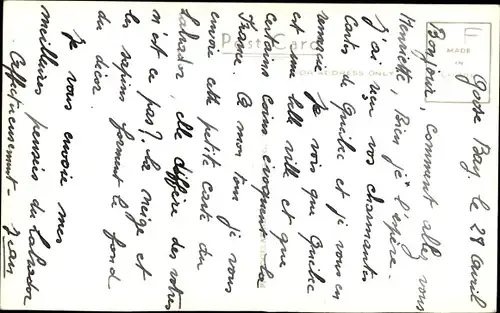 Goose Bay, le 28 avril
Bonjour, comment allez vous
Henriette, Bien j'espère.
J'ai reçu vos charmantes
Cartes de Québec et je vous en
remercie. Je vois que Québec
est une belle ville et que
certains coins évoquent la
France. A mon tour je vous
envoie cette petite carte du
Labrador, elle diffère des votres
n'est ce pas? La neige et
les sapins forment le fond
du décor.
Je vous envoie mes
meilleures pensées du Labrador
Affectueusement - Jean
Post Card
FOR ADDRESS ONLY
MADE
IN